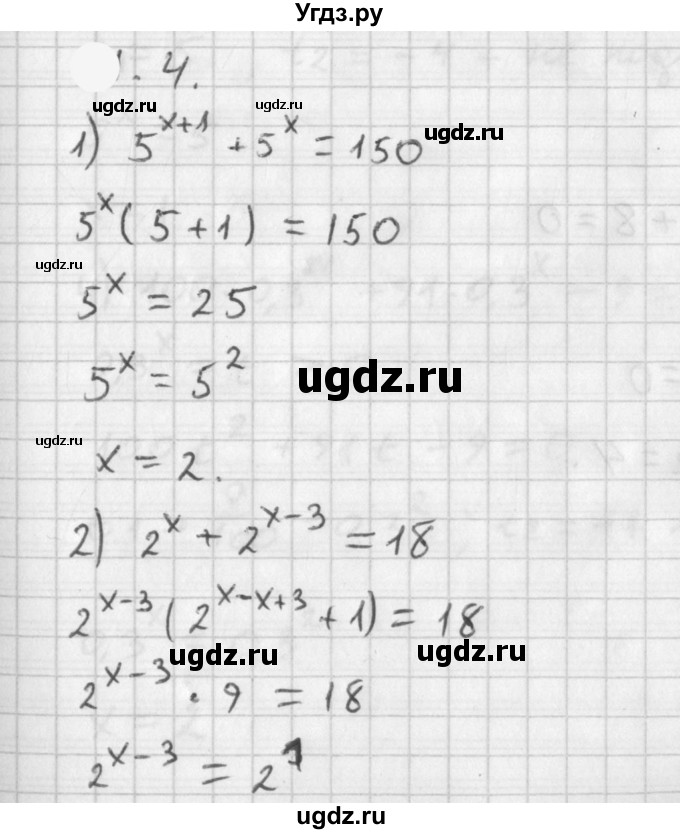 Угдз.ру
1.4.
ugdz.ru ugdz.ru
1) 5^{x+1} + 5^x = 150
ugdz.ru
5^x (5+1) = 150
ugdz.ru
5^x = 25
5^x = 5^2
ugdz.ru
ugdz.ru
x = 2.
2) 2^x + 2^{x-3} = 18
2^{x-3} (2^{x-x+3} + 1) = 18
ugdz.ru ugdz.ru
2^{x-3} · 9 = 18
2^{x-3} = 2^1
ugdz.ru